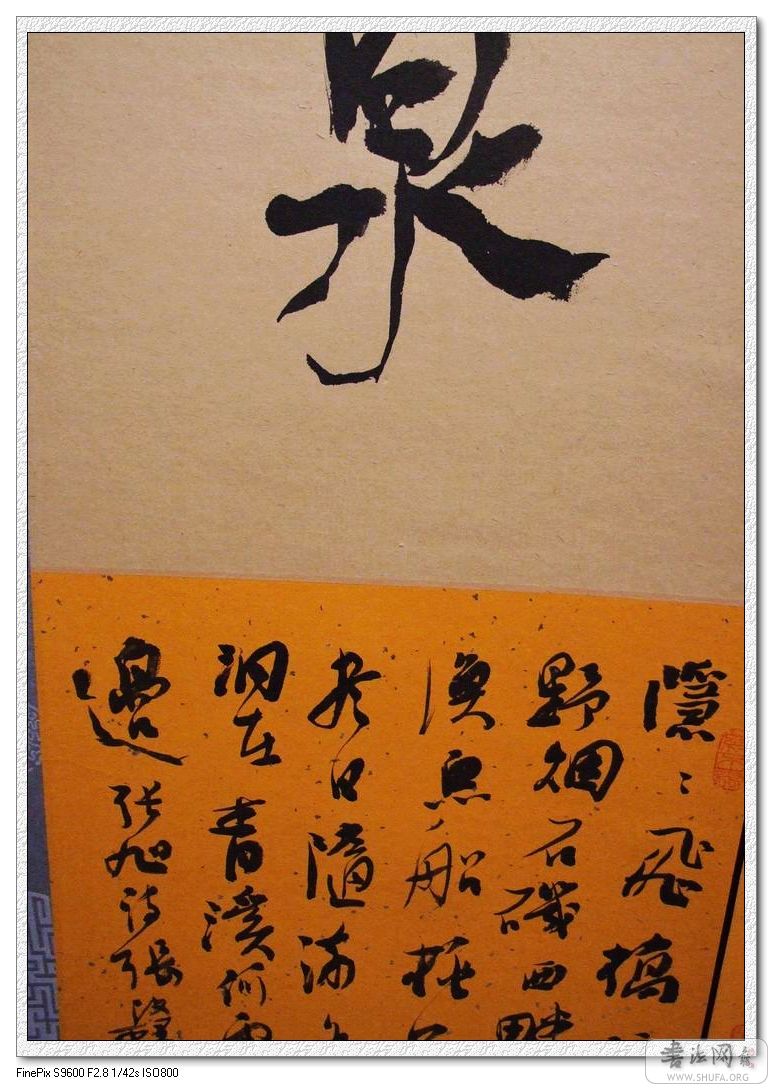 泉
隱〻飛橋
野烟石磯西畔
漁船桃
盡日隨流
洞在青溪何
邊 张旭诗張
书法网
WWW.SHUFA.ORG
FinePix S9600 F2.8 1/42s ISO800